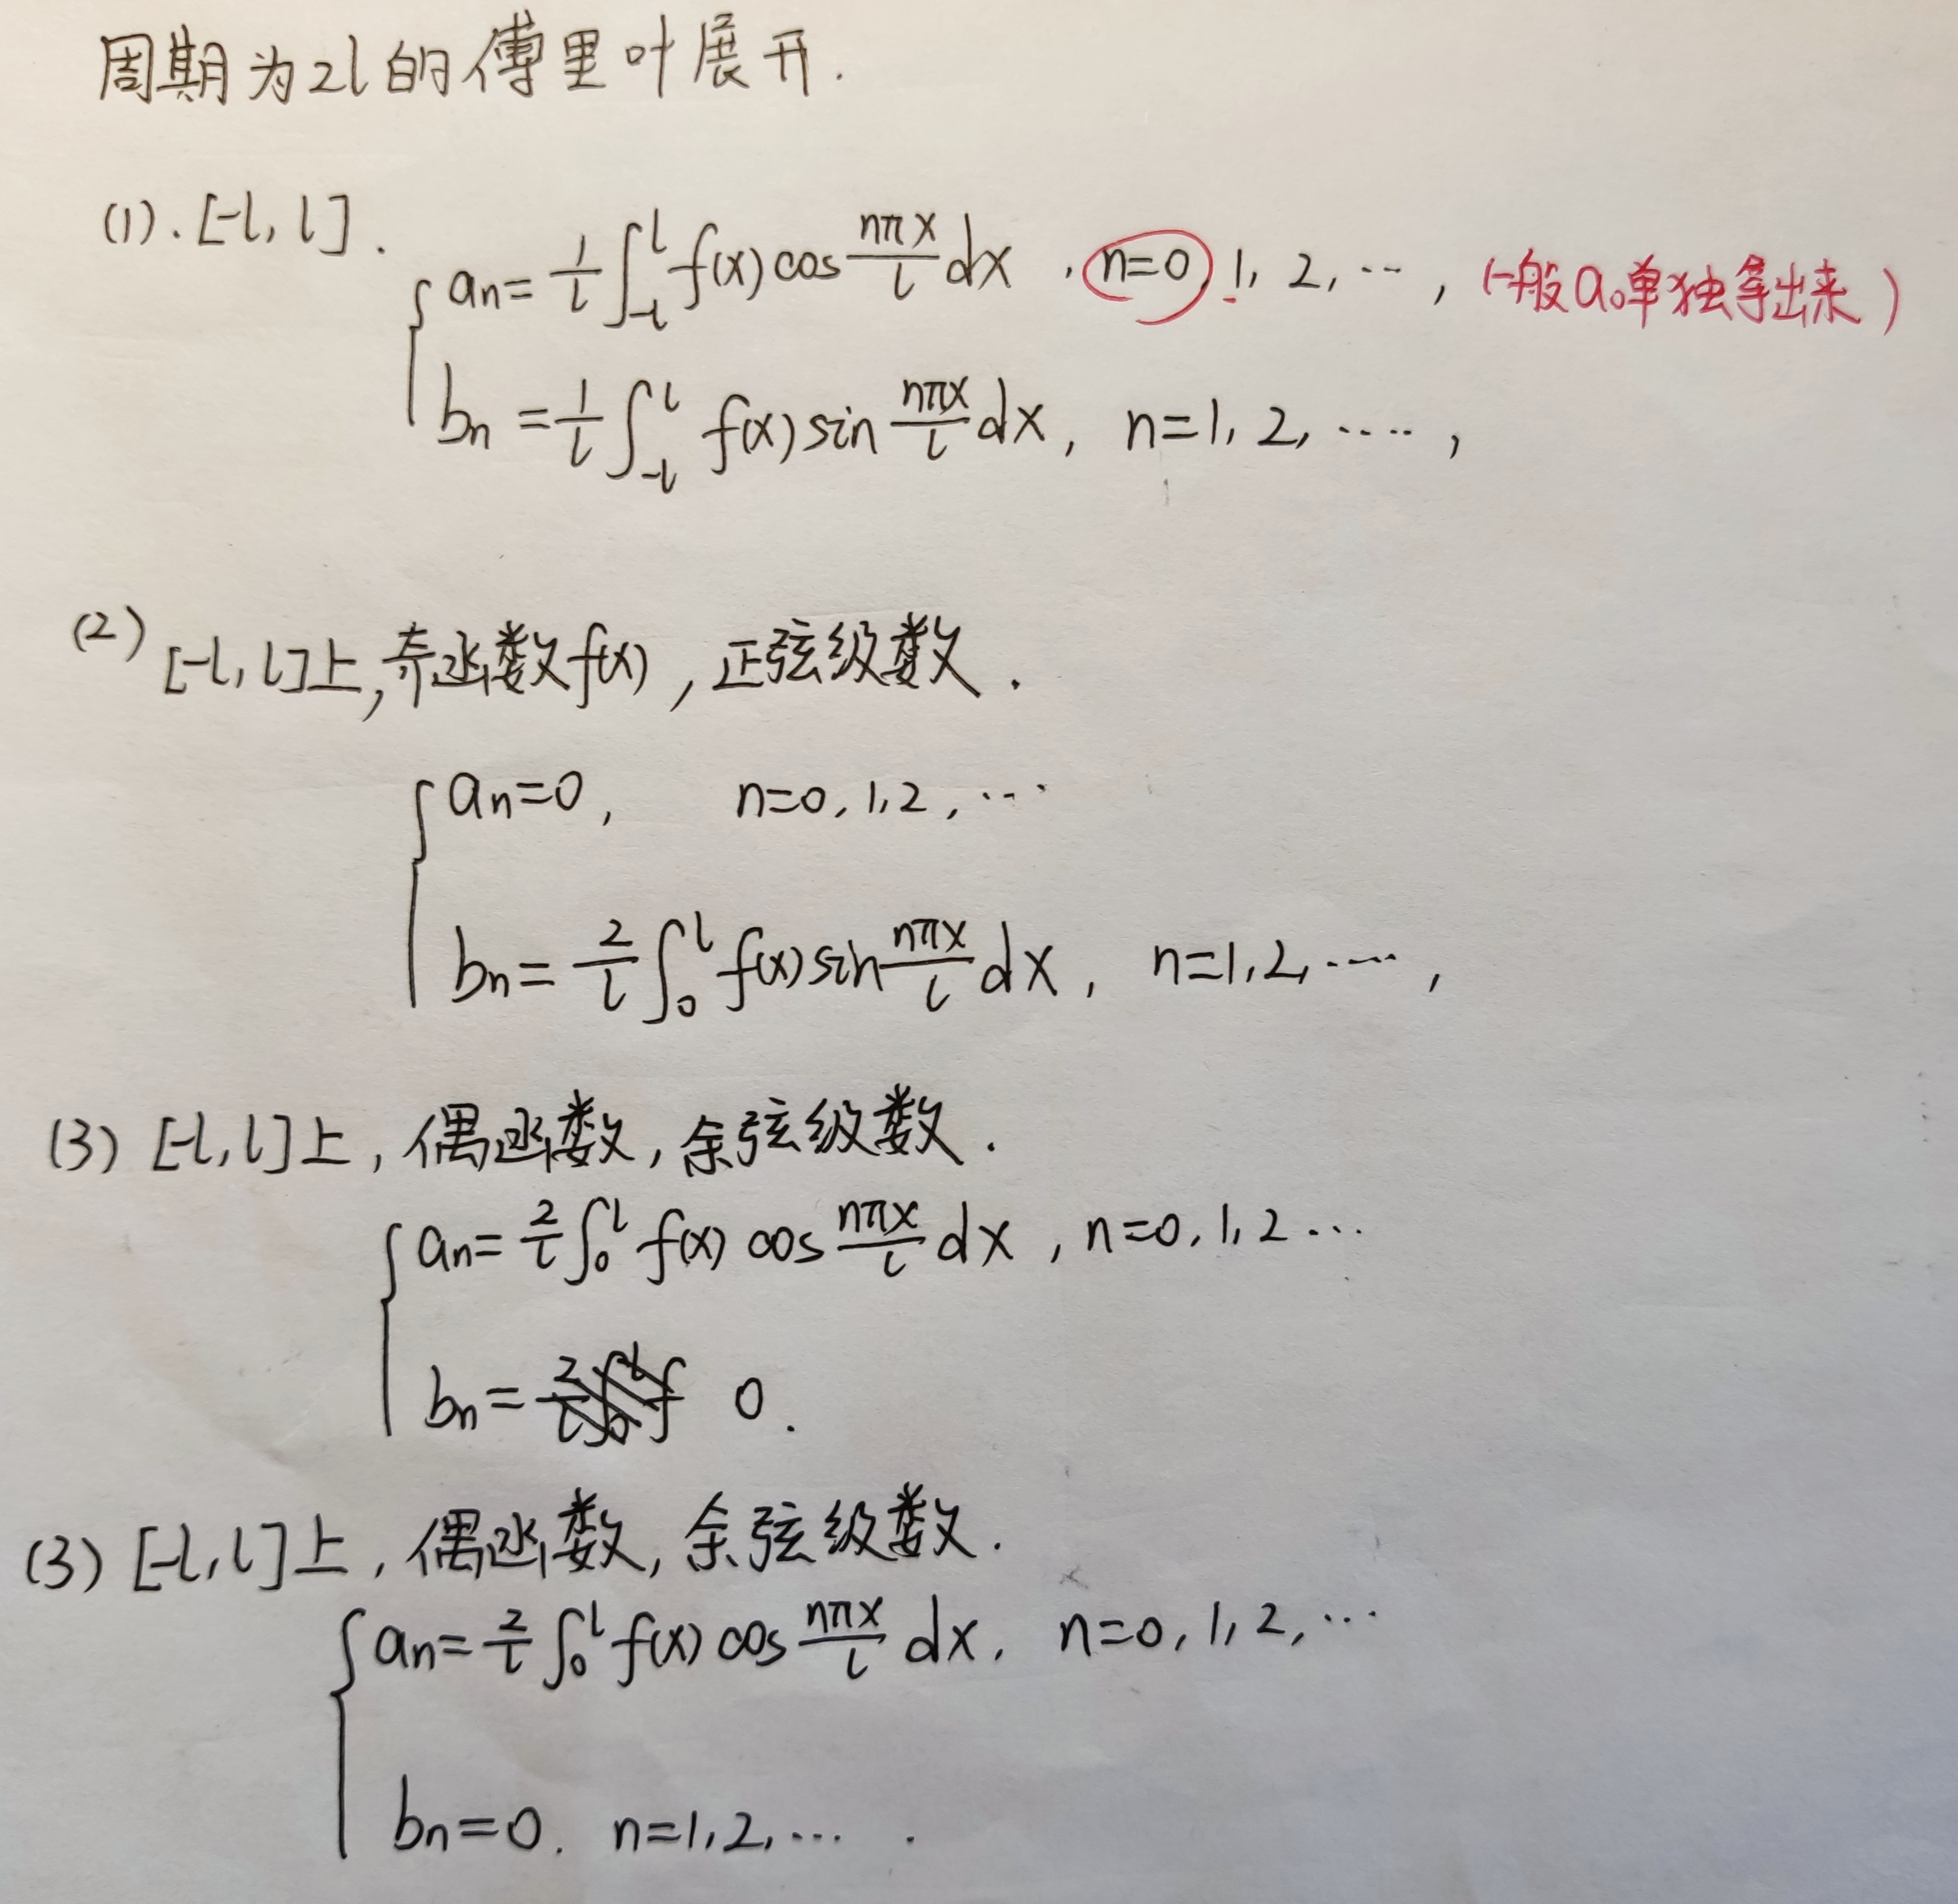 周期为2l的傅里叶展开.
(1). [-l, l].
a_n = \frac{1}{l} \int_{-l}^{l} f(x) cos \frac{nπx}{l} dx , n=0, 1, 2, ···, (一般a_0单独拿出来)
b_n = \frac{1}{l} \int_{-l}^{l} f(x) sin \frac{nπx}{l} dx, n=1, 2, ·····,
(2) [-l, l]上,奇函数f(x),正弦级数.
a_n=0, n=0, 1, 2, ···
b_n = \frac{2}{l} \int_{0}^{l} f(x) sin \frac{nπx}{l} dx, n=1, 2, ·····,
(3) [-l, l]上,偶函数,余弦级数.
a_n = \frac{2}{l} \int_{0}^{l} f(x) cos \frac{nπx}{l} dx, n=0, 1, 2 ···
b_n = 0.
(3) [-l, l]上,偶函数,余弦级数.
a_n = \frac{2}{l} \int_{0}^{l} f(x) cos \frac{nπx}{l} dx, n=0, 1, 2, ···
b_n=0. n=1, 2, ··· .